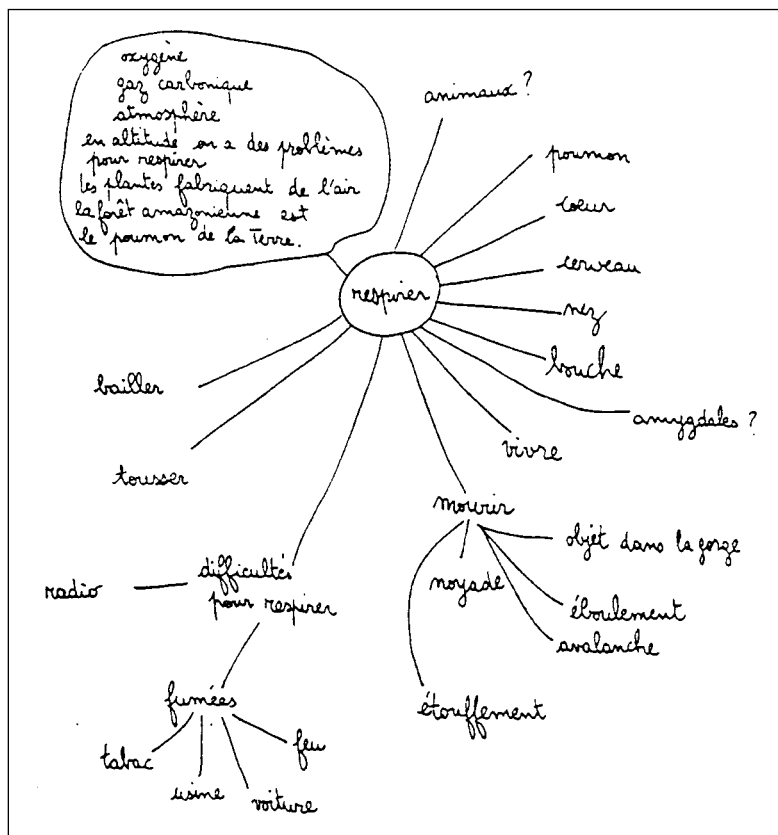 oxygène
gaz carbonique
atmosphère
en altitude on a des problèmes
pour respirer
les plantes fabriquent de l'air
la forêt amazonienne est
le poumon de la Terre.
animaux ?
poumon
coeur
cerveau
nez
bouche
amygdales ?
respirer
bailler
tousser
vivre
mourir
objet dans la gorge
noyade
éboulement
avalanche
étouffement
difficultés
pour respirer
radio
fumées
tabac
usine
voiture
feu